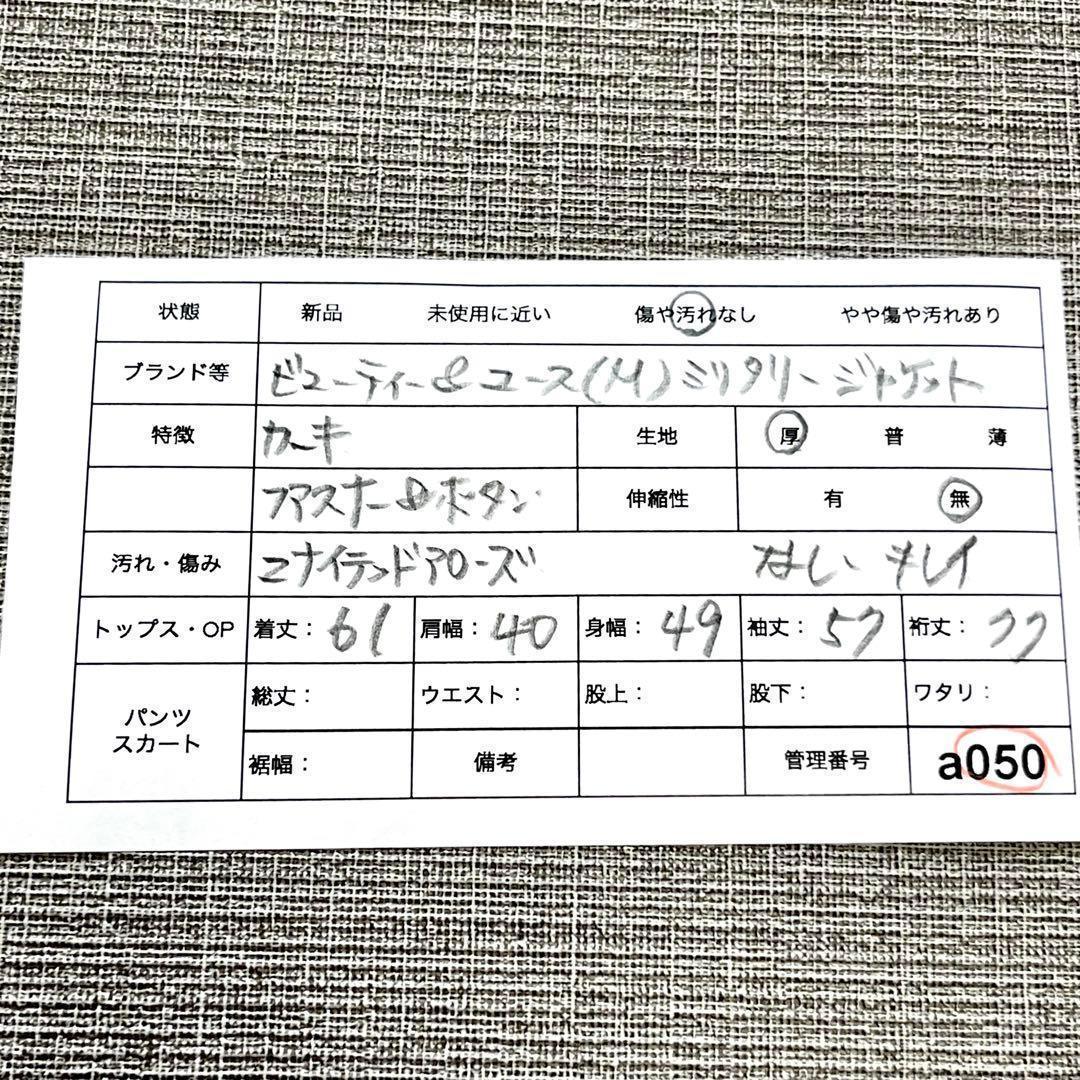 状態 新品 未使用に近い 傷や汚れなし やや傷や汚れあり
ブランド等 ビューティー&ユース(M)ミリタリージャケット
特徴 カーキ 生地 厚 普 薄
ファスナー&ボタン 伸縮性 有 無
汚れ・傷み ユナイテッドアローズ なし キレイ
トップス・OP 着丈: 61 肩幅: 40 身幅: 49 袖丈: 57 裄丈: 77
パンツ スカート 総丈: ウエスト: 股上: 股下: ワタリ:
裾幅: 備考 管理番号 a050